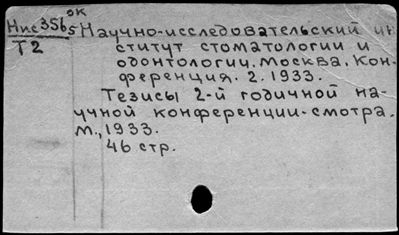 ок
Нис3565 Научно-исследовательский ин
Т2 ститут стоматологии и
одонтологии. Москва. Кон-
ференция. 2. 1933.
Тезисы 2-й годичной на-
учной конференции-смотра.
М., 1933.
46 стр.